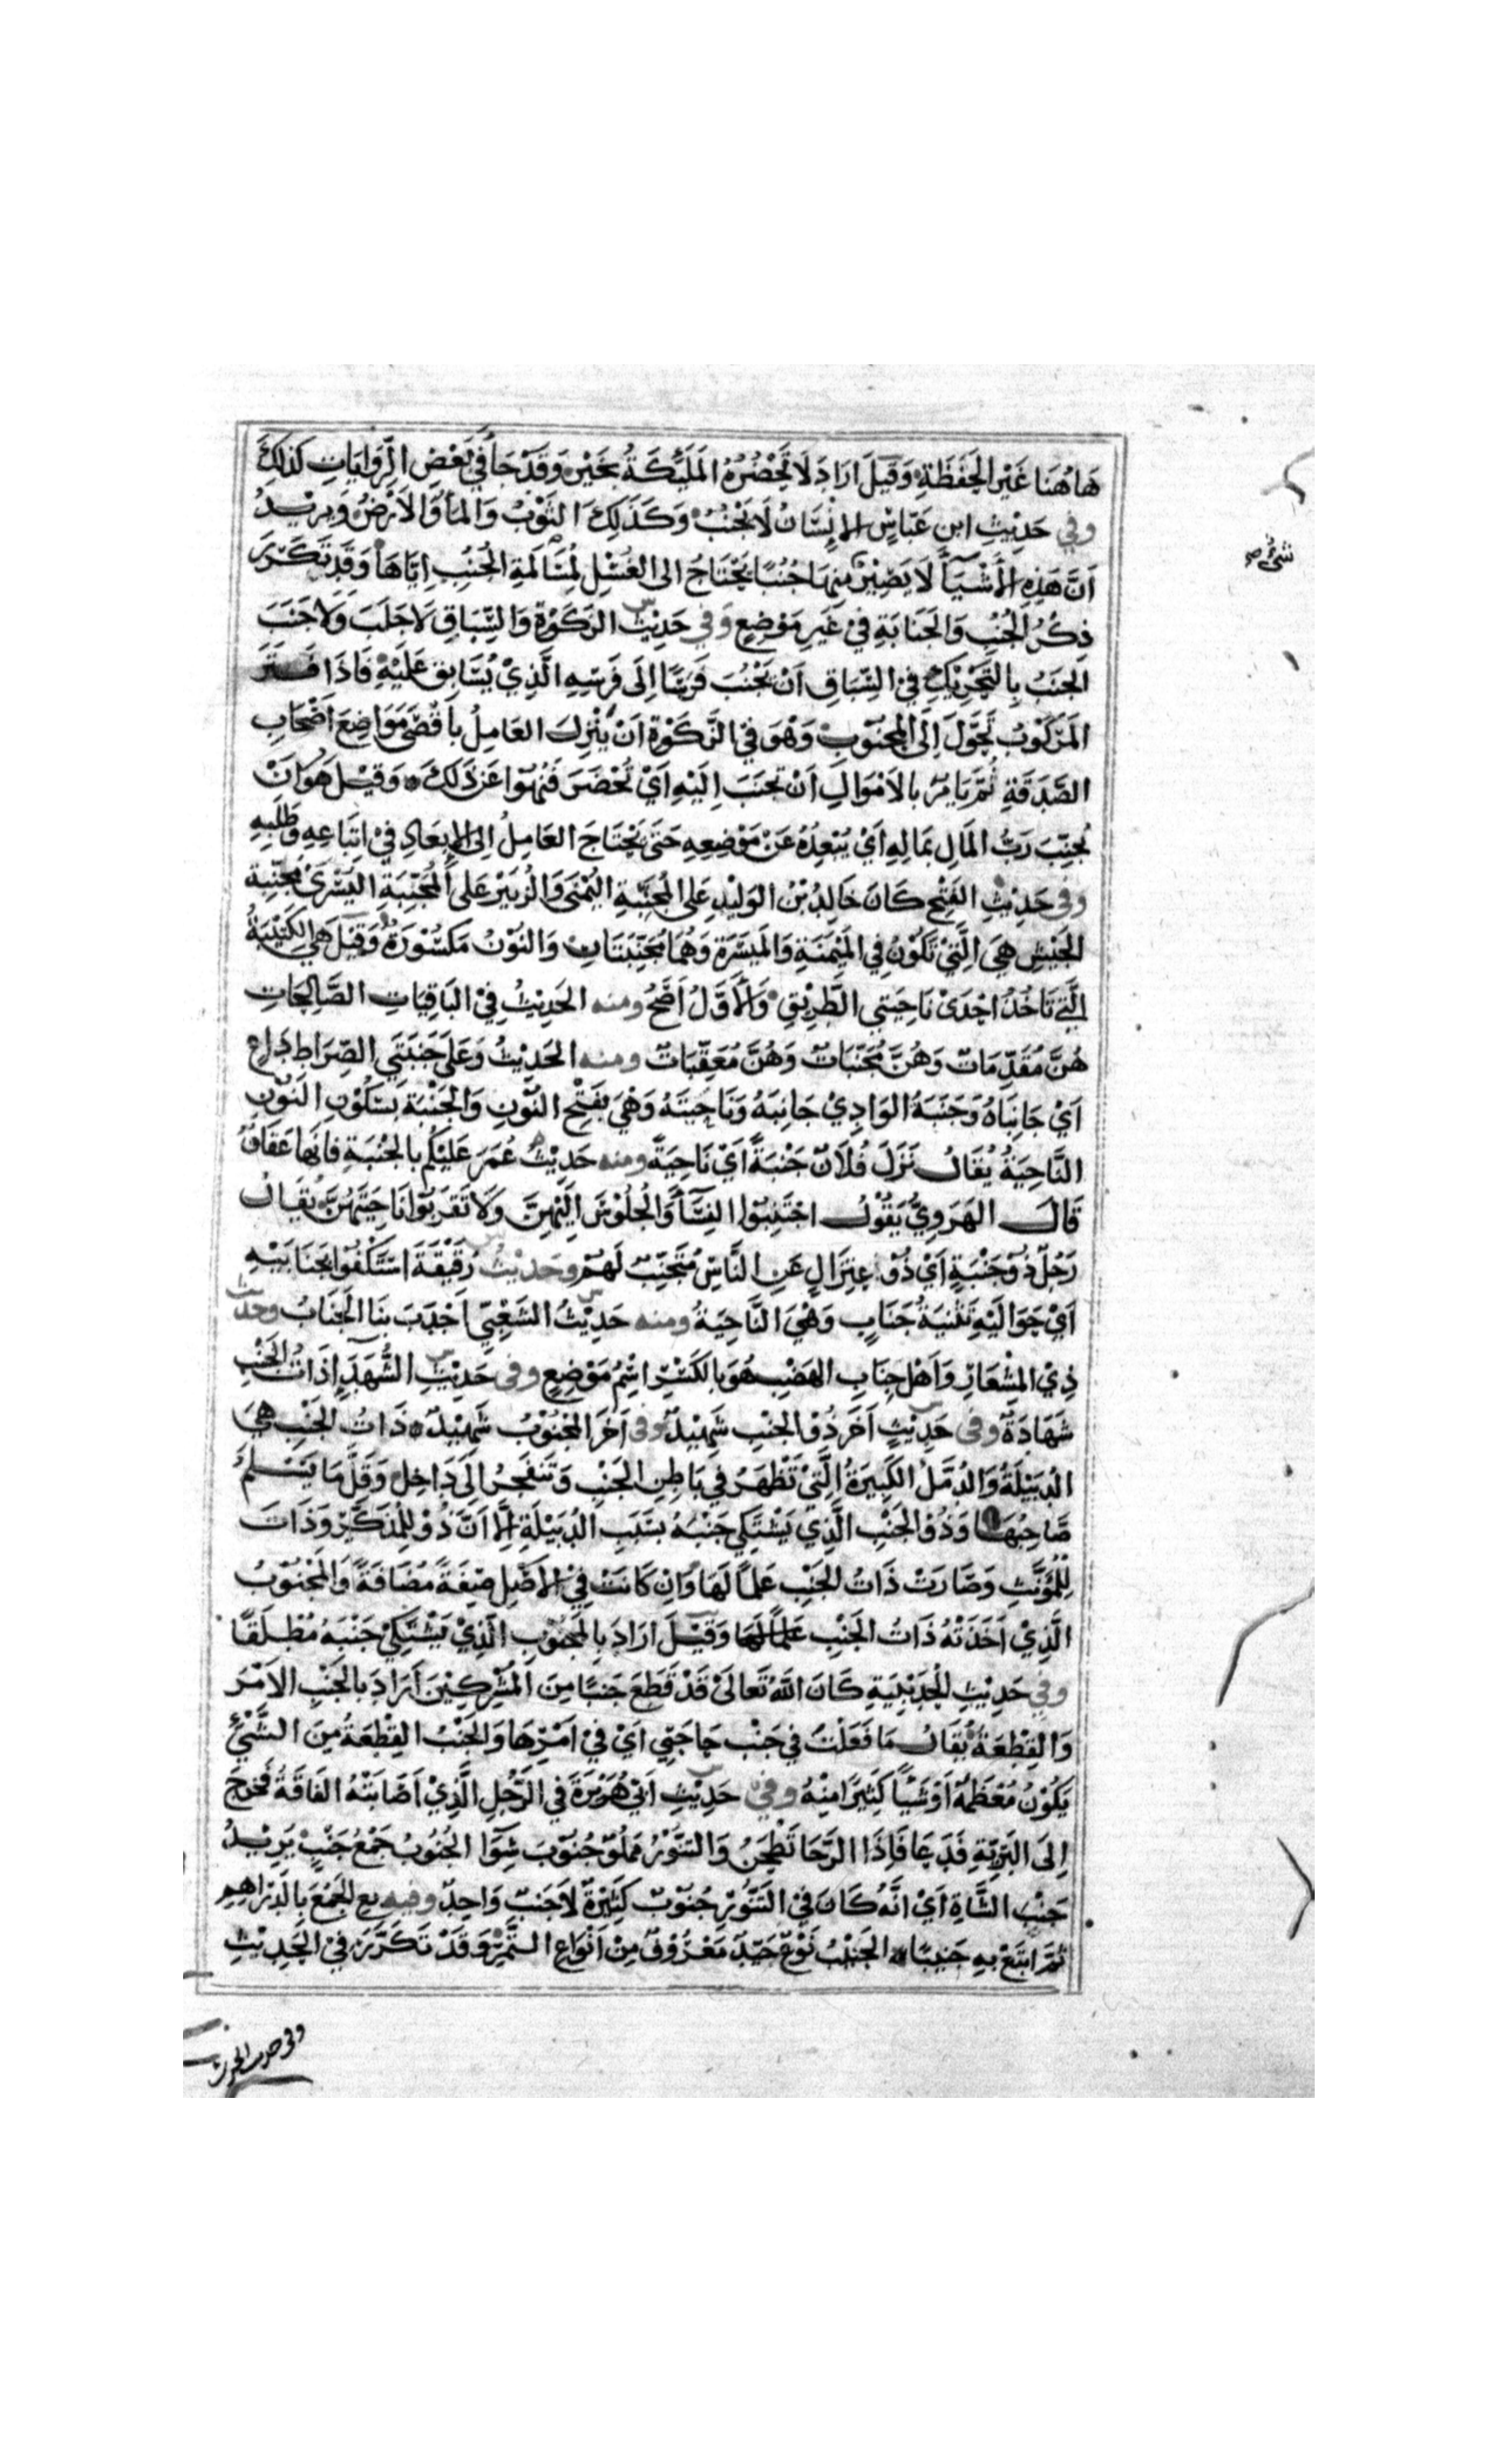 هَاهُنَا غَيْرَ الحَفَظَةِ وَقِيلَ ارَادَ لَا تَحْضُرُهُ المَلَئِكَةُ بِخَيْرٍ وَقَدْ جَاَ فِي بَعْضِ الرِّوَايَاتِ كَذَلِكَ
وفي حَدِيْثِ ابنِ عَبّاسٍ الاِنْسَانُ لَا يَجْنُبُ وَكَذَلِكَ الثَوْبُ وَالمَاَُ وَالاَرْضُ وَيرِيْدُ
اَنَّ هَذِهِ الاَشْيَآَ لَا يَصِيْرُ شئ مِنهَا جُنُبًا يَحْتَاجُ الى الغُسْلِ لِمُلَامَسَةِ الجُنُبِ اِيَّاهَا وَقَدْ تَكَرّرَ
ذِكْرُ الجُنُبِ وَالجَنَابَةِ فِيْ غَيرِ مَوْضِعٍ وَفي حَدِيْثِ الزَكَوْةِ وَالسِّبَاقِ لَا جَلَبَ وَلَا جَنَبَ
الجَنَبُ بِالتَّحْرِيْكِ فِيْ السِّبَاقِ اَنْ يَجْنُبَ فَرَسًا اِلَى فَرَسِهِ الَّذِيْ يُسَابِقُ عَلَيْهِ فَاذَا فَتَرَ
المَرْكُوْبُ تَحَوَّلَ اِلَى المَجْنُوْبِ وَهُوَ في الزَّكَوْةِ اَنْ يَنْزِلَ العَامِلُ بِاَقْصَى مَوَاضِعَ اَصْحَابِ
الصَّدَقَةِ ثُمَّ يَامُرُ بالاَمْوَالِ اَنْ تُجنَبَ اِلَيْهِ اَيْ تُحْضَرَ فَنُهُوْا عَنْ ذَلِكَ وَقِيْلَ هُوَ اَنْ
يُجنِبَ رَبُّ المَالِ بمَالِهِ اَيْ يُبْعِدُهُ عَنْ مَوْضِعِهِ حَتَّى يَحْتَاجَ العَامِلُ اِلى الاِبعَادِ فِيْ اِتِّبَاعِهِ وَطَلَبِهِ
وفي حَدِيْثِ الفَتْحِ كَانَ خَالِدُ بْنُ الوَلِيْدِ عَلى المُجَنِّبَةِ اليُمْنَى وَالزُبَيْرُ عَلى المُجَنِّبَةِ اليُسْرَى مُجَنِّبَةُ
الجَيْشِ هِيَ الَّتِيْ تَكُوْنُ فِي المَيْمَنَةِ وَالمَيْسَرَةِ وَهُمَا مُجَنِّبَتَانِ وَالنُوْنُ مَكسُوْرَةٌ وَقِيْلَ هِيَ الكَتِيْبَةُ
الَّتِي تَاخُذُ اِحْدَىْ نَاحِيَتَي الطَّرِيْقِ وَالاَوَّلُ اَصَحُّ ومنه الحَدِيْثُ فِيْ البَاقِيَاتِ الصَّالِحَاتِ
هُنَّ مُقَدِّمَاتٌ وَهُنَّ مُجَنِّبَاتٌ وَهُنَّ مُعَقِّبَاتٌ ومنه الحَدِيْثُ وَعَلَى جَنَبَتَيِ الصِّرَاطِ دَاعٍ
اَيْ جَانِبَاهُ وَجَنَبَةُ الوَادِيْ جَانِبَهُ وَنَاحِيَتَهُ وَهْيَ بِفَتْحِ النُّوْنِ وَالجَنْبَةُ بِسُكُوْنِ النُوْنِ
النَّاحِيَةُ يُقَالُ نَزَلَ فُلَانٌ جَنْبَةً اَيْ نَاحِيَةً ومنه حَدِيْثُ عُمَرَ عَلَيْكُم بِالجَنْبَةِ فَانَّهَا عَفَافٌ
قَالَ الهَرَوِيُّ يَقُوْلُ اجْتَنِبُوْا النِسَاَ وَالجُلُوْسَ الَيْهِنَّ وَلَا تَقْرَبُوْا نَاحِيَتَهُنَّ يُقَالُ
رَجُلٌ ذُوْ جَنْبَةٍ اَيْ ذُوْ اعتِزَالٍ عَنِ النَّاسِ مُتَجَنِّبٌ لَهُمْ وحَدِيْثُ رُقَيْقَةَ اسْتَكْفُوْا جَنَابَيْهِ
اَيْ حَوَالَيْهِ تَثنِيَةُ جَنَابٍ وَهْيَ النَّاحِيَةُ ومنه حَدِيْثُ الشَعْبِيّ اَجْدَبَ بِنَا الجَنَابُ وحديث
ذِي المِشْعَارِ وَاَهْلِ جِنَابِ الهَضْبِ هُوَ بِالكَسْرِ اسْمُ مَوْضِعٍ وفي حَدِيْثِ الشُّهَدَآِ ذَاتُ الجَنْبِ
شَهَادَةٌ وفي حَدِيْثٍ آخَرَ ذُوْ الجَنْبِ شَهِيْدٌ وفي آخَرَ المَجْنُوْبُ شَهِيْدٌ ذَاتُ الجَنْبِ هِيَ
الدُبَيْلَةُ وَالدُمَّلُ الكَبِيْرَةُ الَّتِيْ تَظْهَرُ فِيْ بَاطِنِ الجَنْبِ وَتَنفَجِرُ اِلَى دَاخِلٍ وَقَلَّ مَا يَسْلَمُ
صَاحِبُهَا وَذُوْ الجَنْبِ الَّذِي يَشْتَكِي جَنْبَهُ بِسَبَبِ الدُبَيْلَةِ اِلَّا اَنَّ ذُوْ لِلْمُذَكَّرِ وَذَاتَ
لِلْمُؤَنَّثِ وَصَارَتْ ذَاتُ الجَنْبِ عَلَمًا لَهَا وَاِنْ كَانَتْ فِيْ الاَصْلِ صِفَةً مُضَافَةً وَالمَجْنُوْبُ
الَّذِيْ اَخَذَتْهُ ذَاتُ الجَنْبِ عَلَمًا لَهَا وَقِيْلَ ارَادَ بِالمَجْنُوْبِ الَّذِيْ يَشْتَكِيْ جَنْبَهُ مُطْلَقًا
وفي حَدِيْثِ الحُدَيْبِيَةِ كَانَ اللّٰهُ تَعَالَىْ قَدْ قَطَعَ جَنبًا مِنَ المُشْرِكِيْنَ اَرَادَ بالجَنْبِ الاَمْرَ
وَالقِطْعَةَ يُقَالُ مَا فَعَلْتَ فِي جَنْبِ حَاجَتِي اَيْ فِيْ اَمْرِهَا وَالجَنْبُ القِطْعَةُ مِنَ الشَّيْئِ
يَكُوْنُ مُعْظَمَهُ اَوْ شَيْأً كَثِيْرًا مِنْهُ وفي حَدِيْثِ اَبِيْ هُرَيْرَةَ في الرَّجُلِ الَّذِيْ اَصَابَتْهُ الفَاقَةُ فَخَرَجَ
اِلَى البَرِيَّةِ فَدَعَا فَاِذَا الرَّحَا تَطْحَنُ وَالتَنُّوْرُ مَملُوٌّ جُنُوْبَ شِوَآٍ الجُنُوْبُ جَمْعُ جَنْبٍ يَرِيْدُ
جَنْبَ الشَّاةِ اَيْ اَنَّهُ كَانَ فِيْ التَنُّوْرِ جُنُوْبٌ كَثِيْرَةٌ لَا جَنبٌ وَاحِدٌ وفيه بع الجَمْعَ بِالدَرَاهِمِ
ثُمَّ ابتَعْ بِهِ جَنِيبًا الجَنِيْبُ نَوْعٌ جَيّدٌ مَعْرُوْفٌ مِنْ اَنْوَاعِ التَّمْرِ وَقَدْ تَكَرَّرَ فِيْ الحَدِيْثِ
وفي حديث الحرث